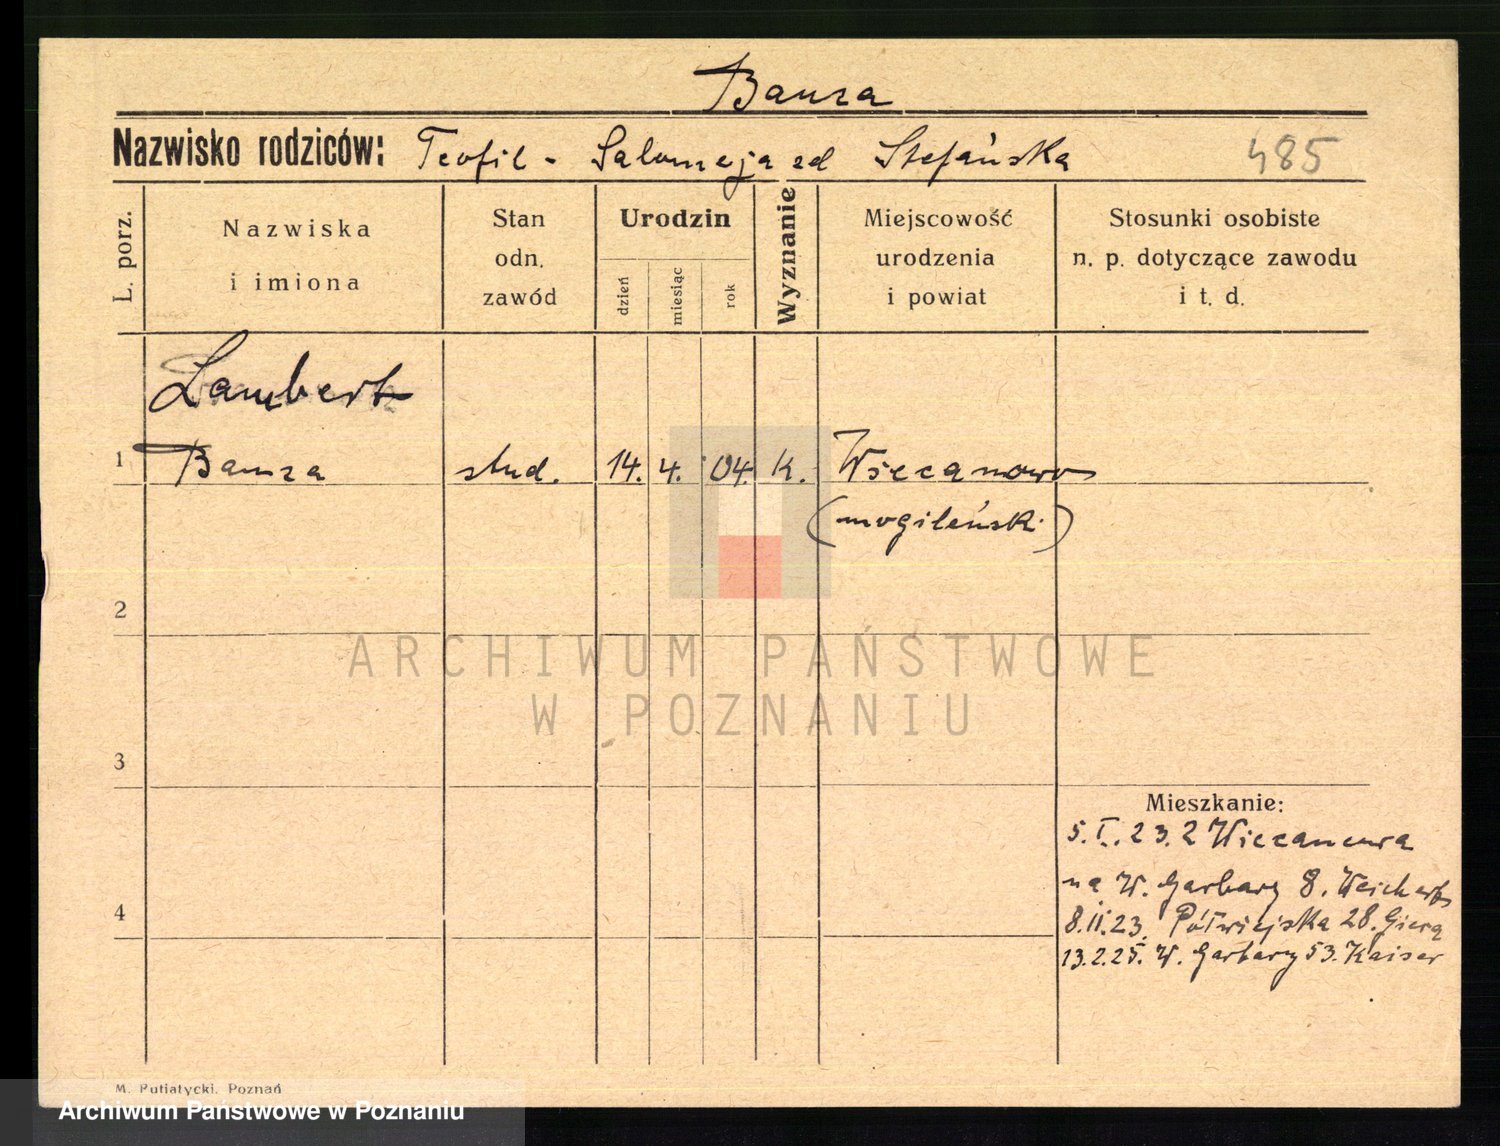 Bauza
Nazwisko rodziców: Teofil - Salomeja zd Stefańska 485
L. porz.
Nazwiska
i imiona
Stan
odn.
zawód
Urodzin
dzień
miesiąc
rok
Wyznanie
Miejscowość
urodzenia
i powiat
Stosunki osobiste
n. p. dotyczące zawodu
i t. d.
Lambert
1 Bauza stud. 14. 4. 04. k. Wiecanowo
(mogileński)
2
ARCHIWUM PAŃSTWOWE
W POZNANIU
3
Mieszkanie:
5.I.23. z Wiecanowa
na W. Garbary 8. Weichert
4
8.II.23. Półwiejska 28. Giera
13.2.25. W. Garbary 53. Kaiser
M. Putiatycki. Poznań
Archiwum Państwowe w Poznaniu